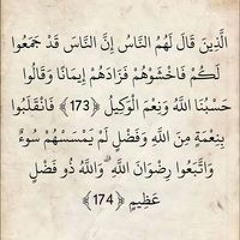 الَّذِينَ قَالَ لَهُمُ النَّاسُ إِنَّ النَّاسَ قَدْ جَمَعُوا
لَكُمْ فَاخْشَوْهُمْ فَزَادَهُمْ إِيمَانًا وَقَالُوا
حَسْبُنَا اللَّهُ وَنِعْمَ الْوَكِيلُ ﴿173﴾ فَانْقَلَبُوا
بِنِعْمَةٍ مِنَ اللَّهِ وَفَضْلٍ لَمْ يَمْسَسْهُمْ سُوءٌ
وَاتَّبَعُوا رِضْوَانَ اللَّهِ ۗ وَاللَّهُ ذُو فَضْلٍ
عَظِيمٍ ﴿174﴾